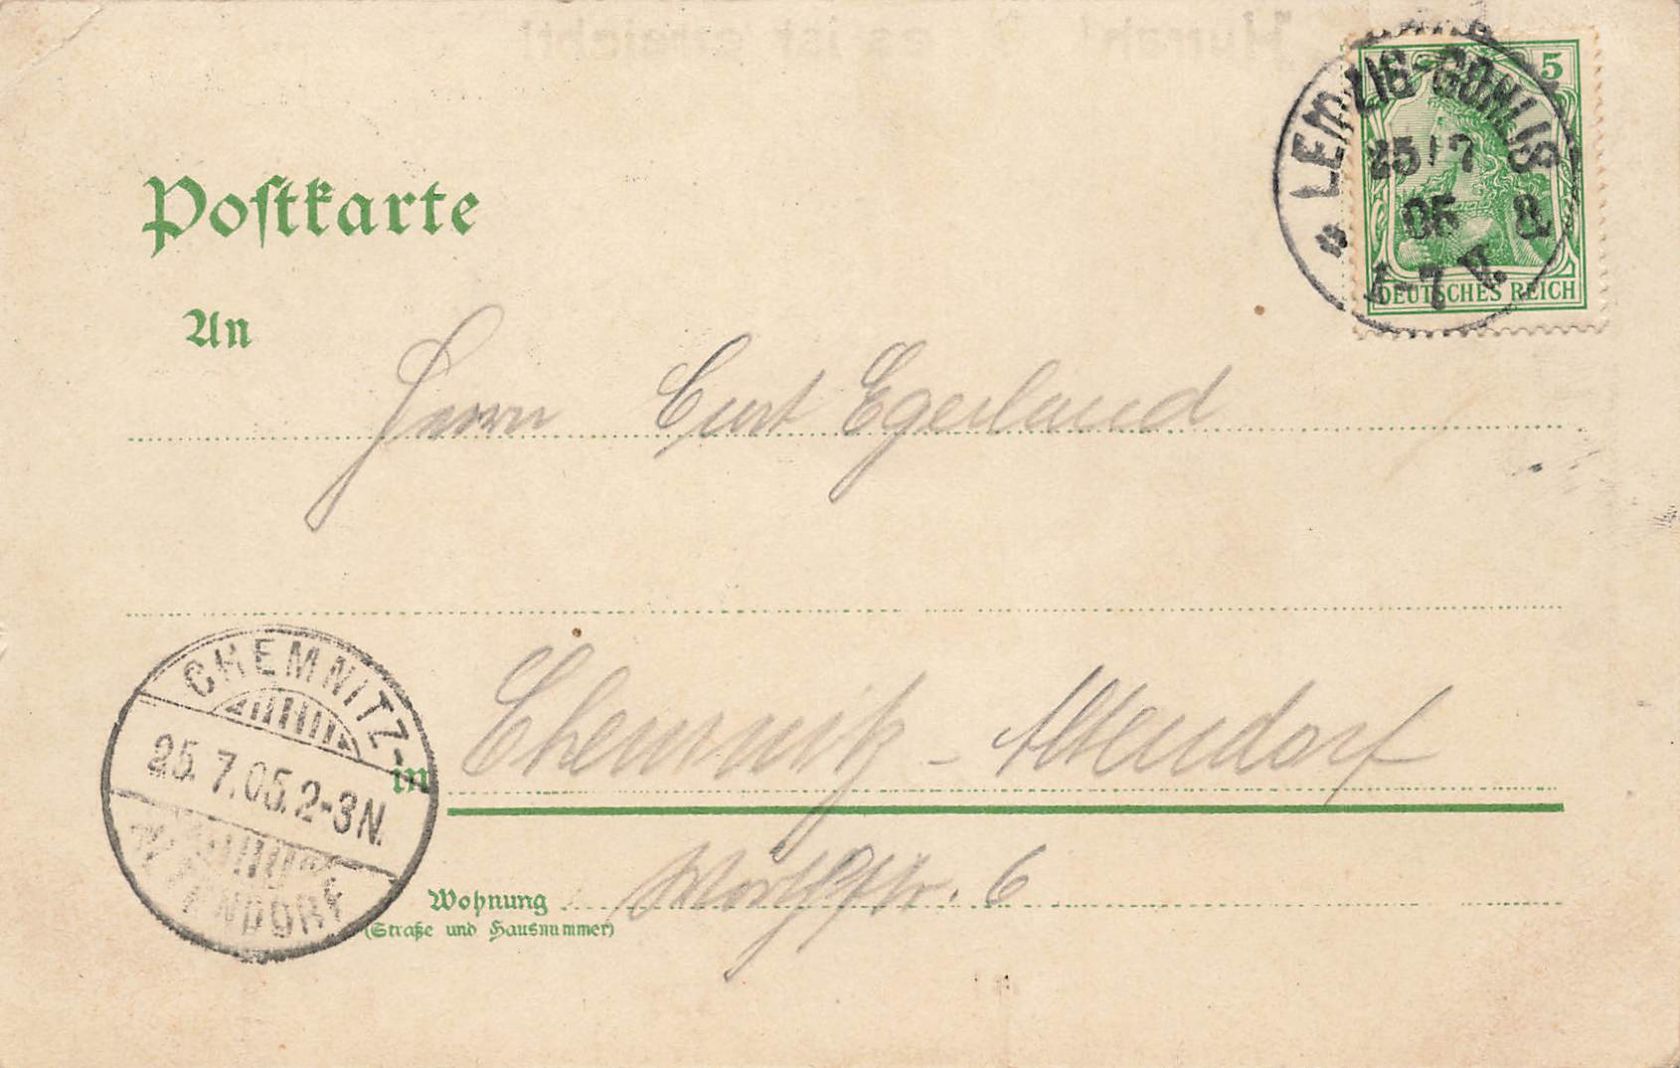 Postkarte
5
LEIPZIG-GOHLIS
25/7
05 8.
6-7 V.
DEUTSCHES REICH
An
Herrn Curt Egerland
CHEMNITZ-
25.7.05.2-3N.
ALTENDORF
in Chemnitz - Altendorf
Wohnung 6
(Straße und Hausnummer)